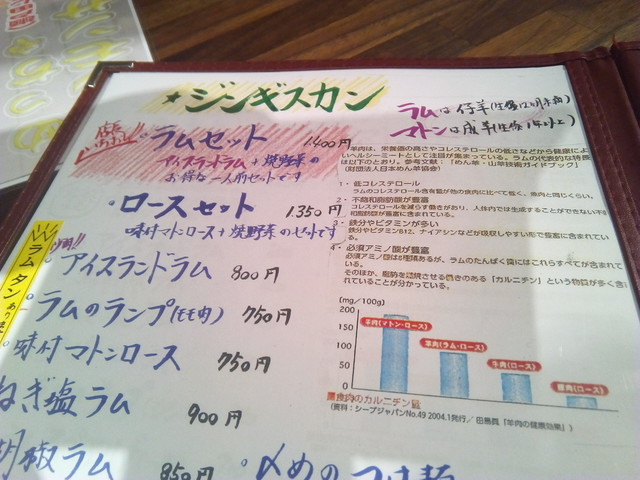 ★ジンギスカン
ラムは仔羊(生後12ヶ月未満)
マトンは成羊(生後1年以上)
店長いちおし!!
・ラムセット 1,400円
アイスランドラム+焼野菜の
お得な一人前セットです
・ロースセット 1,350円
味付マトンロース+焼野菜のセットです
ラムタンあります
・アイスランドラム 800円
・ラムのランプ(モモ肉) 750円
味付マトンロース 750円
ねぎ塩ラム 900円
胡椒ラム 850円
〆めのつけ麺
羊肉は、栄養価の高さやコレステロールの低さなどから健康によい
ヘルシーミートとして注目が集まっている。ラムの代表的な特長
は以下のとおり。参考文献:「めん羊・山羊技術ガイドブック」
(財団法人日本めん羊協会)
1・低コレステロール
ラムのコレステロール含有量が他の食肉に比べて低く、魚肉と同じくらい。
2・不飽和脂肪酸が豊富
コレステロールを減らす働きがあり、人体内では生成することができない不飽
和脂肪酸が豊富に含まれている。
3・鉄分やビタミンが多い
鉄分やビタミンB12、ナイアシンなどが吸収しやすい形で豊富に含まれている。
4・必須アミノ酸が豊富
必須アミノ酸は8種類あるが、ラムのたんぱく質にはこれらすべてが含まれて
いる。
そのほか、脂肪を燃焼させる働きのある「カルニチン」という物質が多く含
まれていることが分かっている。
(mg/100g)
200
150
100
50
0
羊肉(マトン・ロース)
羊肉(ラム・ロース)
牛肉(ロース)
豚肉(ロース)
食肉のカルニチン量
(資料:シープジャパンNo.49 2004.1発行/田島眞「羊肉の健康効果」)